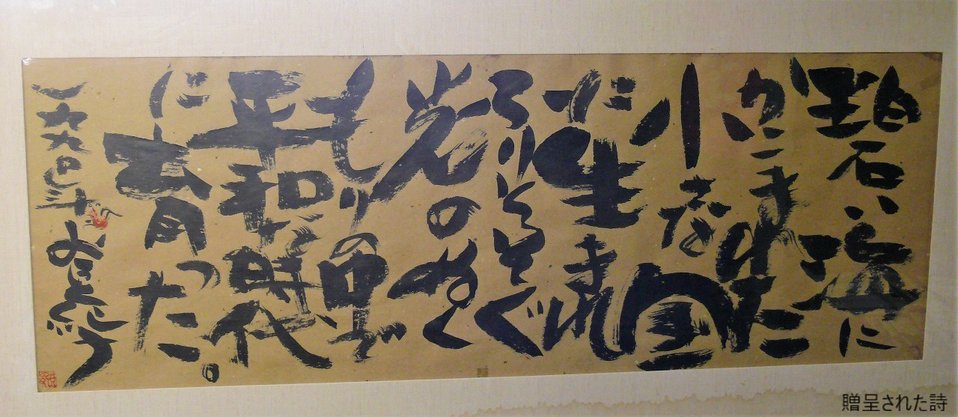 碧い海に
かこまれた
小さな国
に生まれ
ふりそそぐ
光のぬく
もりの中で
平和な時代
に育った。
一九九〇年
贈呈された詩